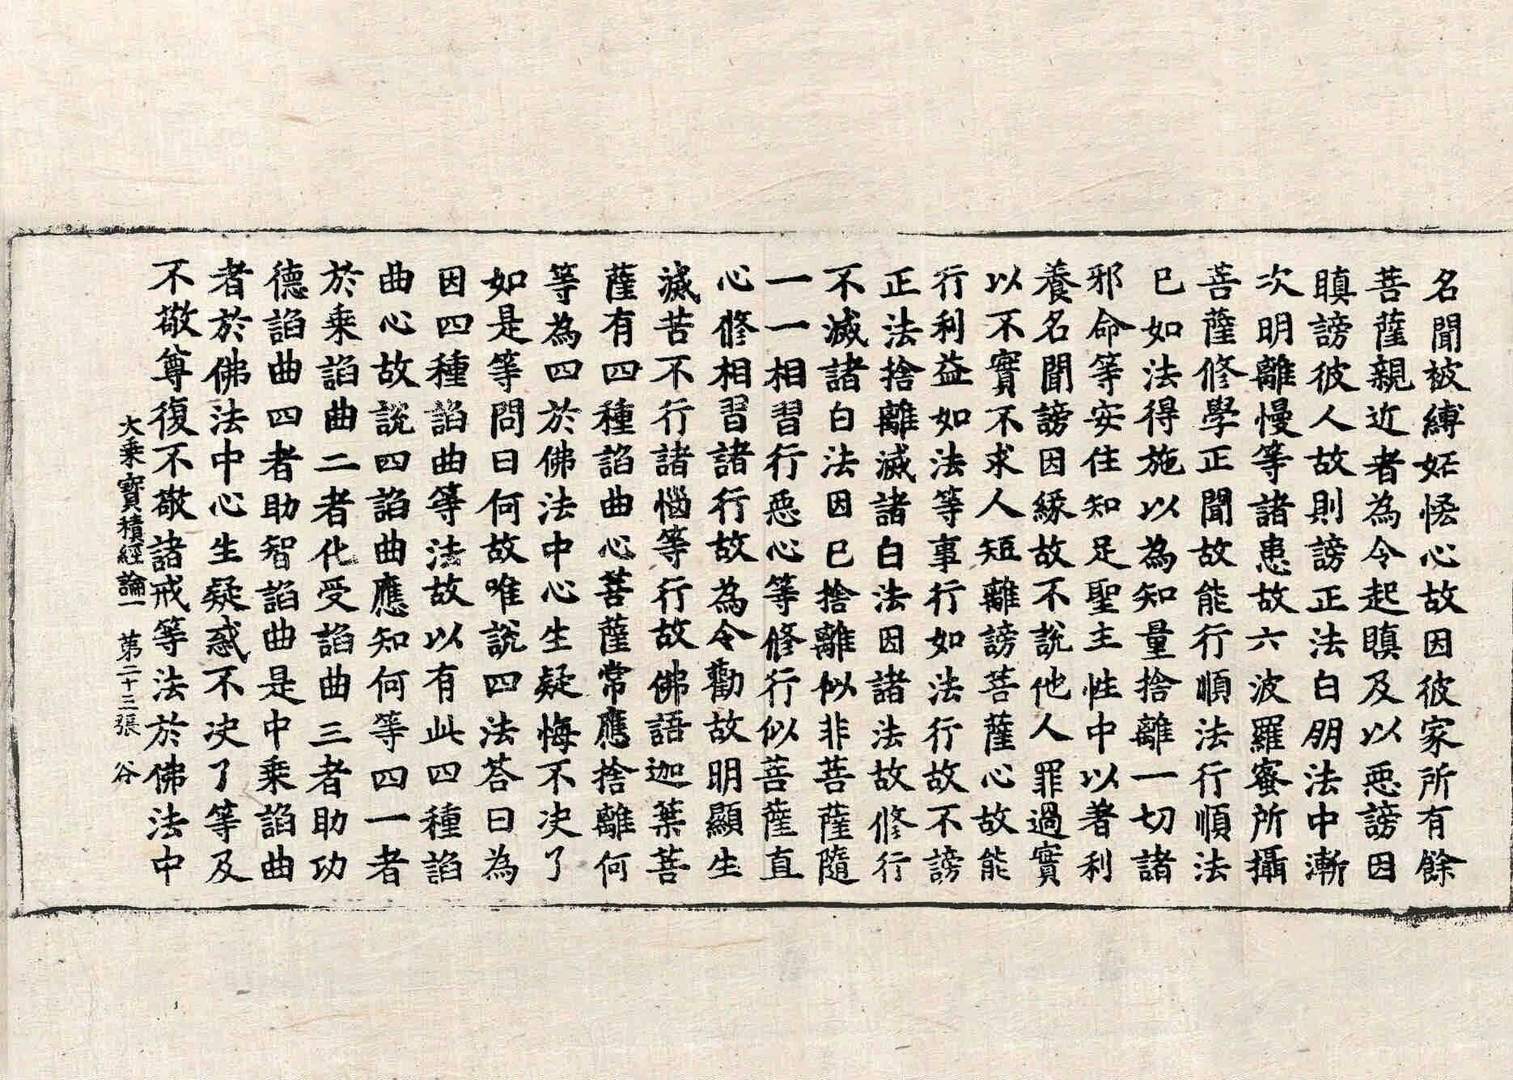 名聞被縛妬恡心故因彼家所有餘
菩薩親近者為令起瞋及以惡謗因
瞋謗彼人故則謗正法白朋法中漸
次明離慢等諸患故六波羅蜜所攝
菩薩修學正聞故能行順法行順法
已如法得施以為知量捨離一切諸
邪命等安住知足聖主性中以著利
養名聞謗因緣故不說他人罪過實
以不實不求人短離謗菩薩心故能
行利益如法等事行如法行故不謗
正法捨離滅諸白法因諸法故修行
不滅諸白法因已捨離似非菩薩隨
一一相習行惡心等修行似菩薩直
心修相習諸行故為令勸故明顯生
滅苦不行諸惱等行故佛語迦葉菩
薩有四種諂曲心菩薩常應捨離何
等為四於佛法中心生疑悔不决了
如是等問曰何故唯說四法答曰為
因四種諂曲等法故以有此四種諂
曲心故說四諂曲應知何等四一者
於乘諂曲二者化受諂曲三者助功
德諂曲四者助智諂曲是中乘諂曲
者於佛法中心生疑惑不决了等及
不敬尊復不敬諸戒等法於佛法中
大乘寶積經論一 第二十三張 谷